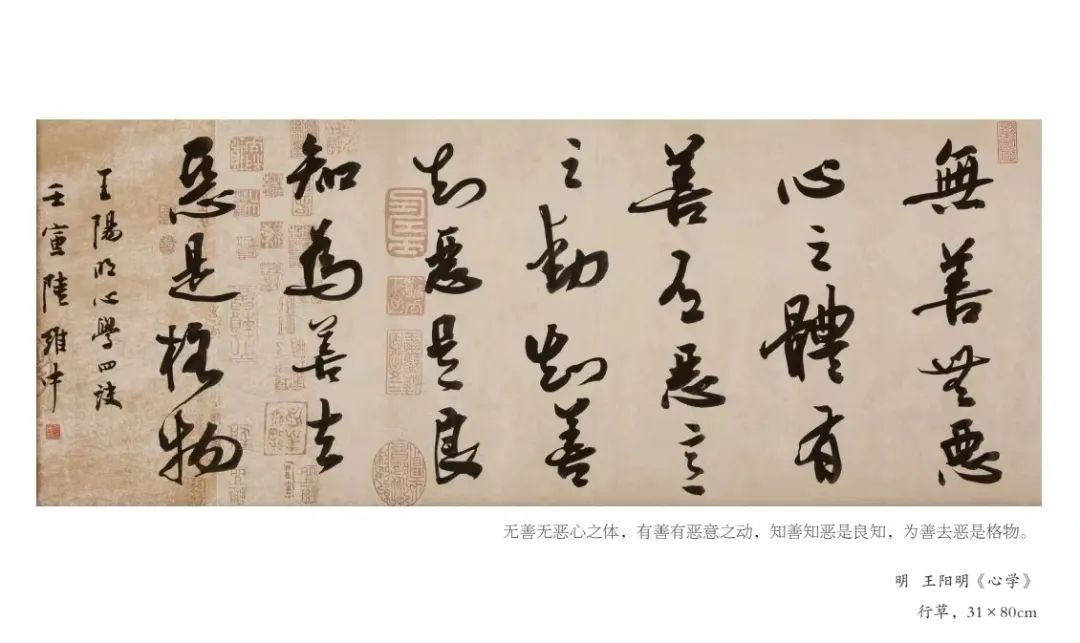 無善無惡
心之體有
善有惡意
之動知善
知惡是良
知為善去
惡是格物
王陽明心學四訣
壬寅陸維中
无善无恶心之体，有善有恶意之动，知善知恶是良知，为善去恶是格物。
明 王阳明《心学》
行草，31×80cm